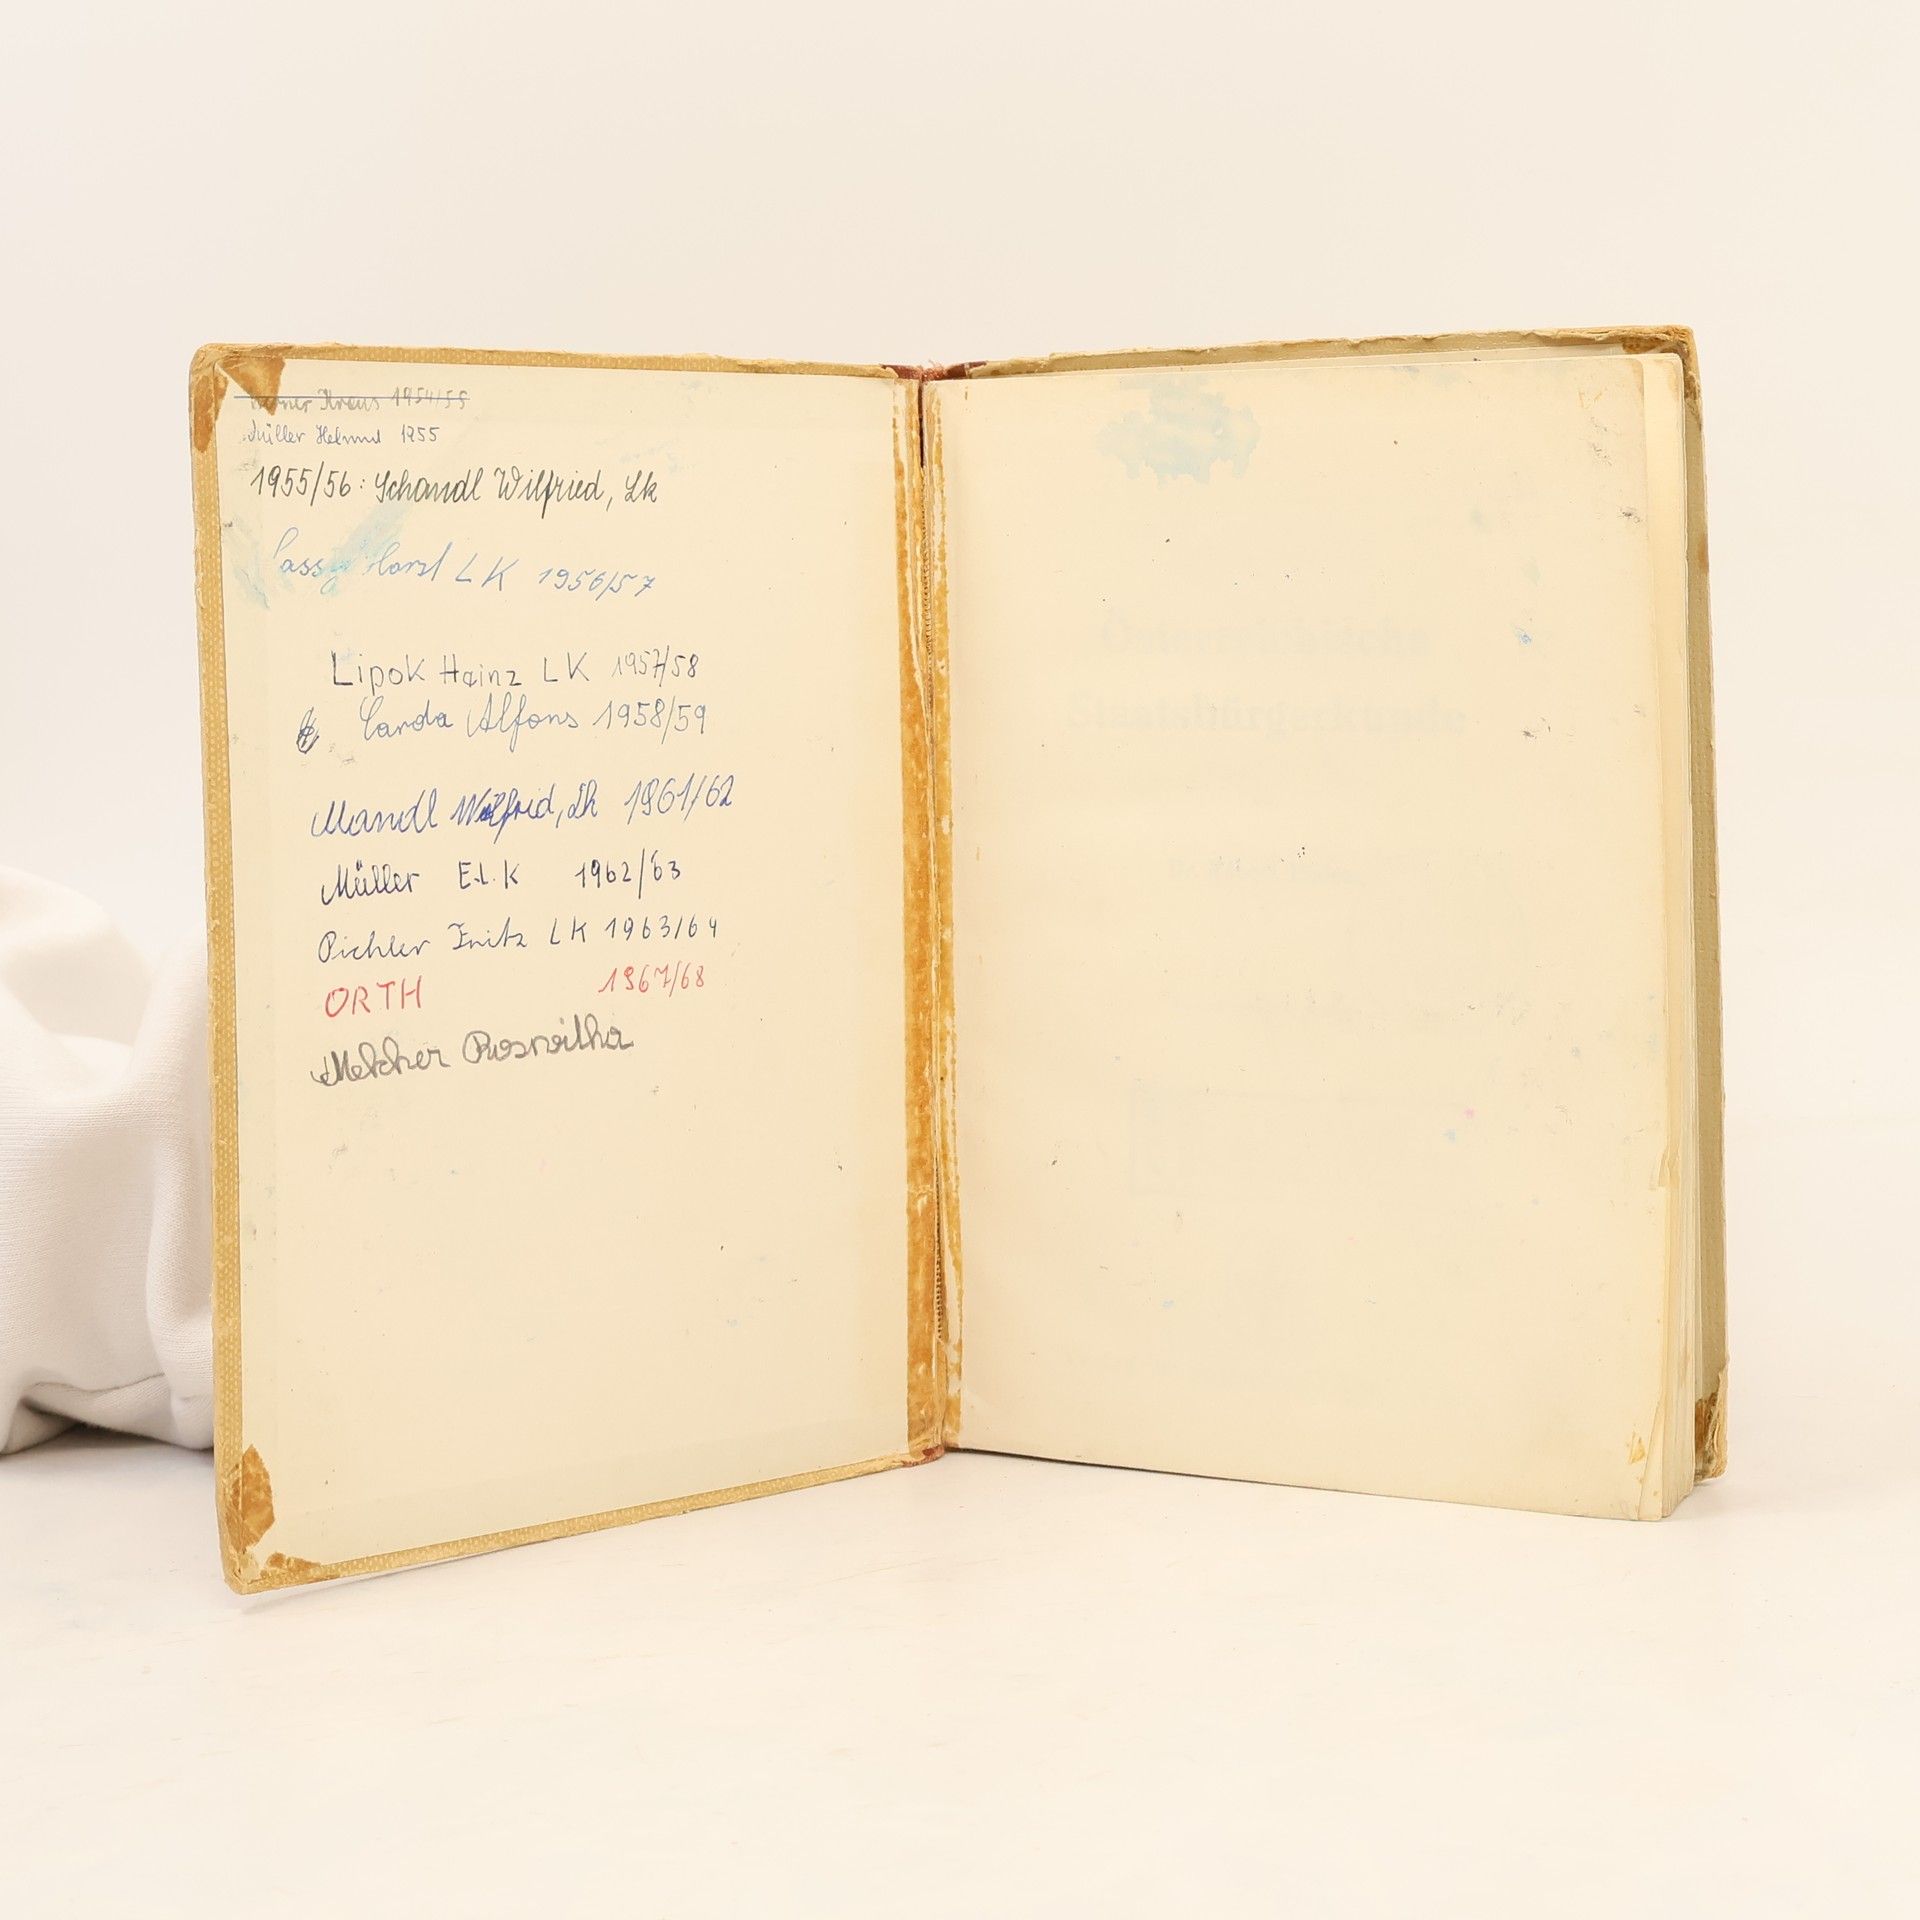 Werner Kraus 1954/55
Müller Helmut 1955
1955/56: Schandl Wilfried, Lk
Horst LK 1956/57
Lipok Hainz LK 1957/58
Carda Alfons 1958/59
Mandl Wilfrid, Lk 1961/62
Müller E. L. K 1962/63
Pichler Fritz LK 1963/64
ORTH 1967/68
Melcher Roswitha
Österreichische
Staatsbürgerkunde